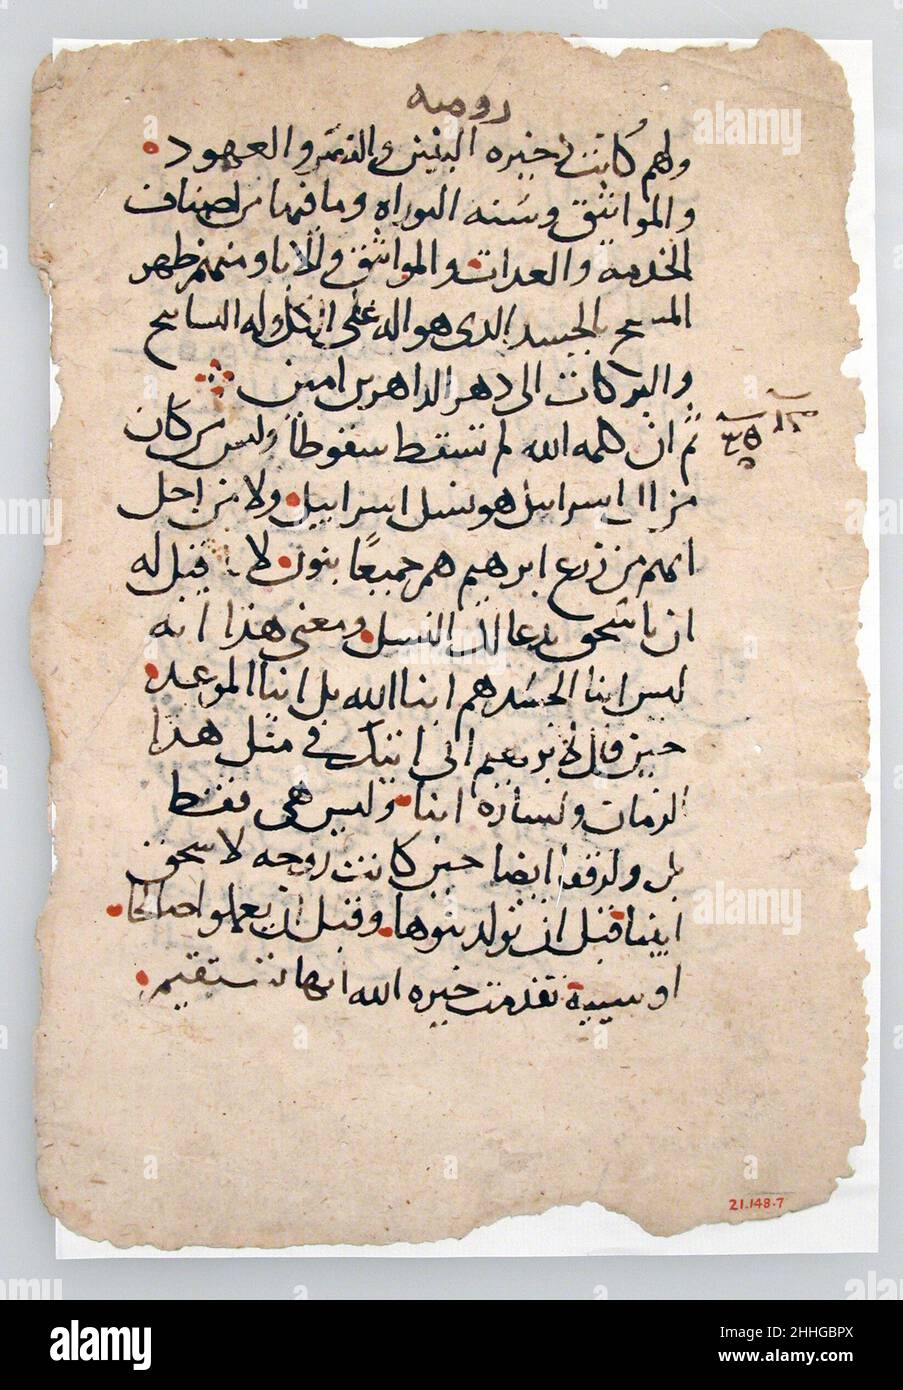 رومية
ولهم كانت خيره البنين والذمم والعهود
والمواثيق وسنه التوراه وما فيها من اصناف
الخدمه والعدات والمواثيق والابا ومنهم ظهر
المسيح بالجسد الذي هو اله على الكل وله التسابيح
والبركات الى دهر الداهرين امين
ثم ان كلمه الله لم تسقط سقوطا وليس من كان
من ال اسرائيل هو نسل اسراييل ولا من اجل
انهم من زرع ابرهيم هم جميعًا بنون لا قيل له
ان باسحق يدعا لك النسل ومعنى هذا انه
ليس ابنا الجسد هم ابنا الله بل ابنا الموعد
حين قال لابرهيم اني اتيك في مثل هذا
الزمان ولساره ابنا وليس هي فقط
بل ورفقا ايضا حين كانت زوجه لاسحق
ابينا قبل ان تولد بنوها وقبل ان يعملوا صالحا
او سيية تقدمت خيره الله انها تستقيم
21.148.7
alamy
alamy
Image ID: 2HHGBPX
www.alamy.com